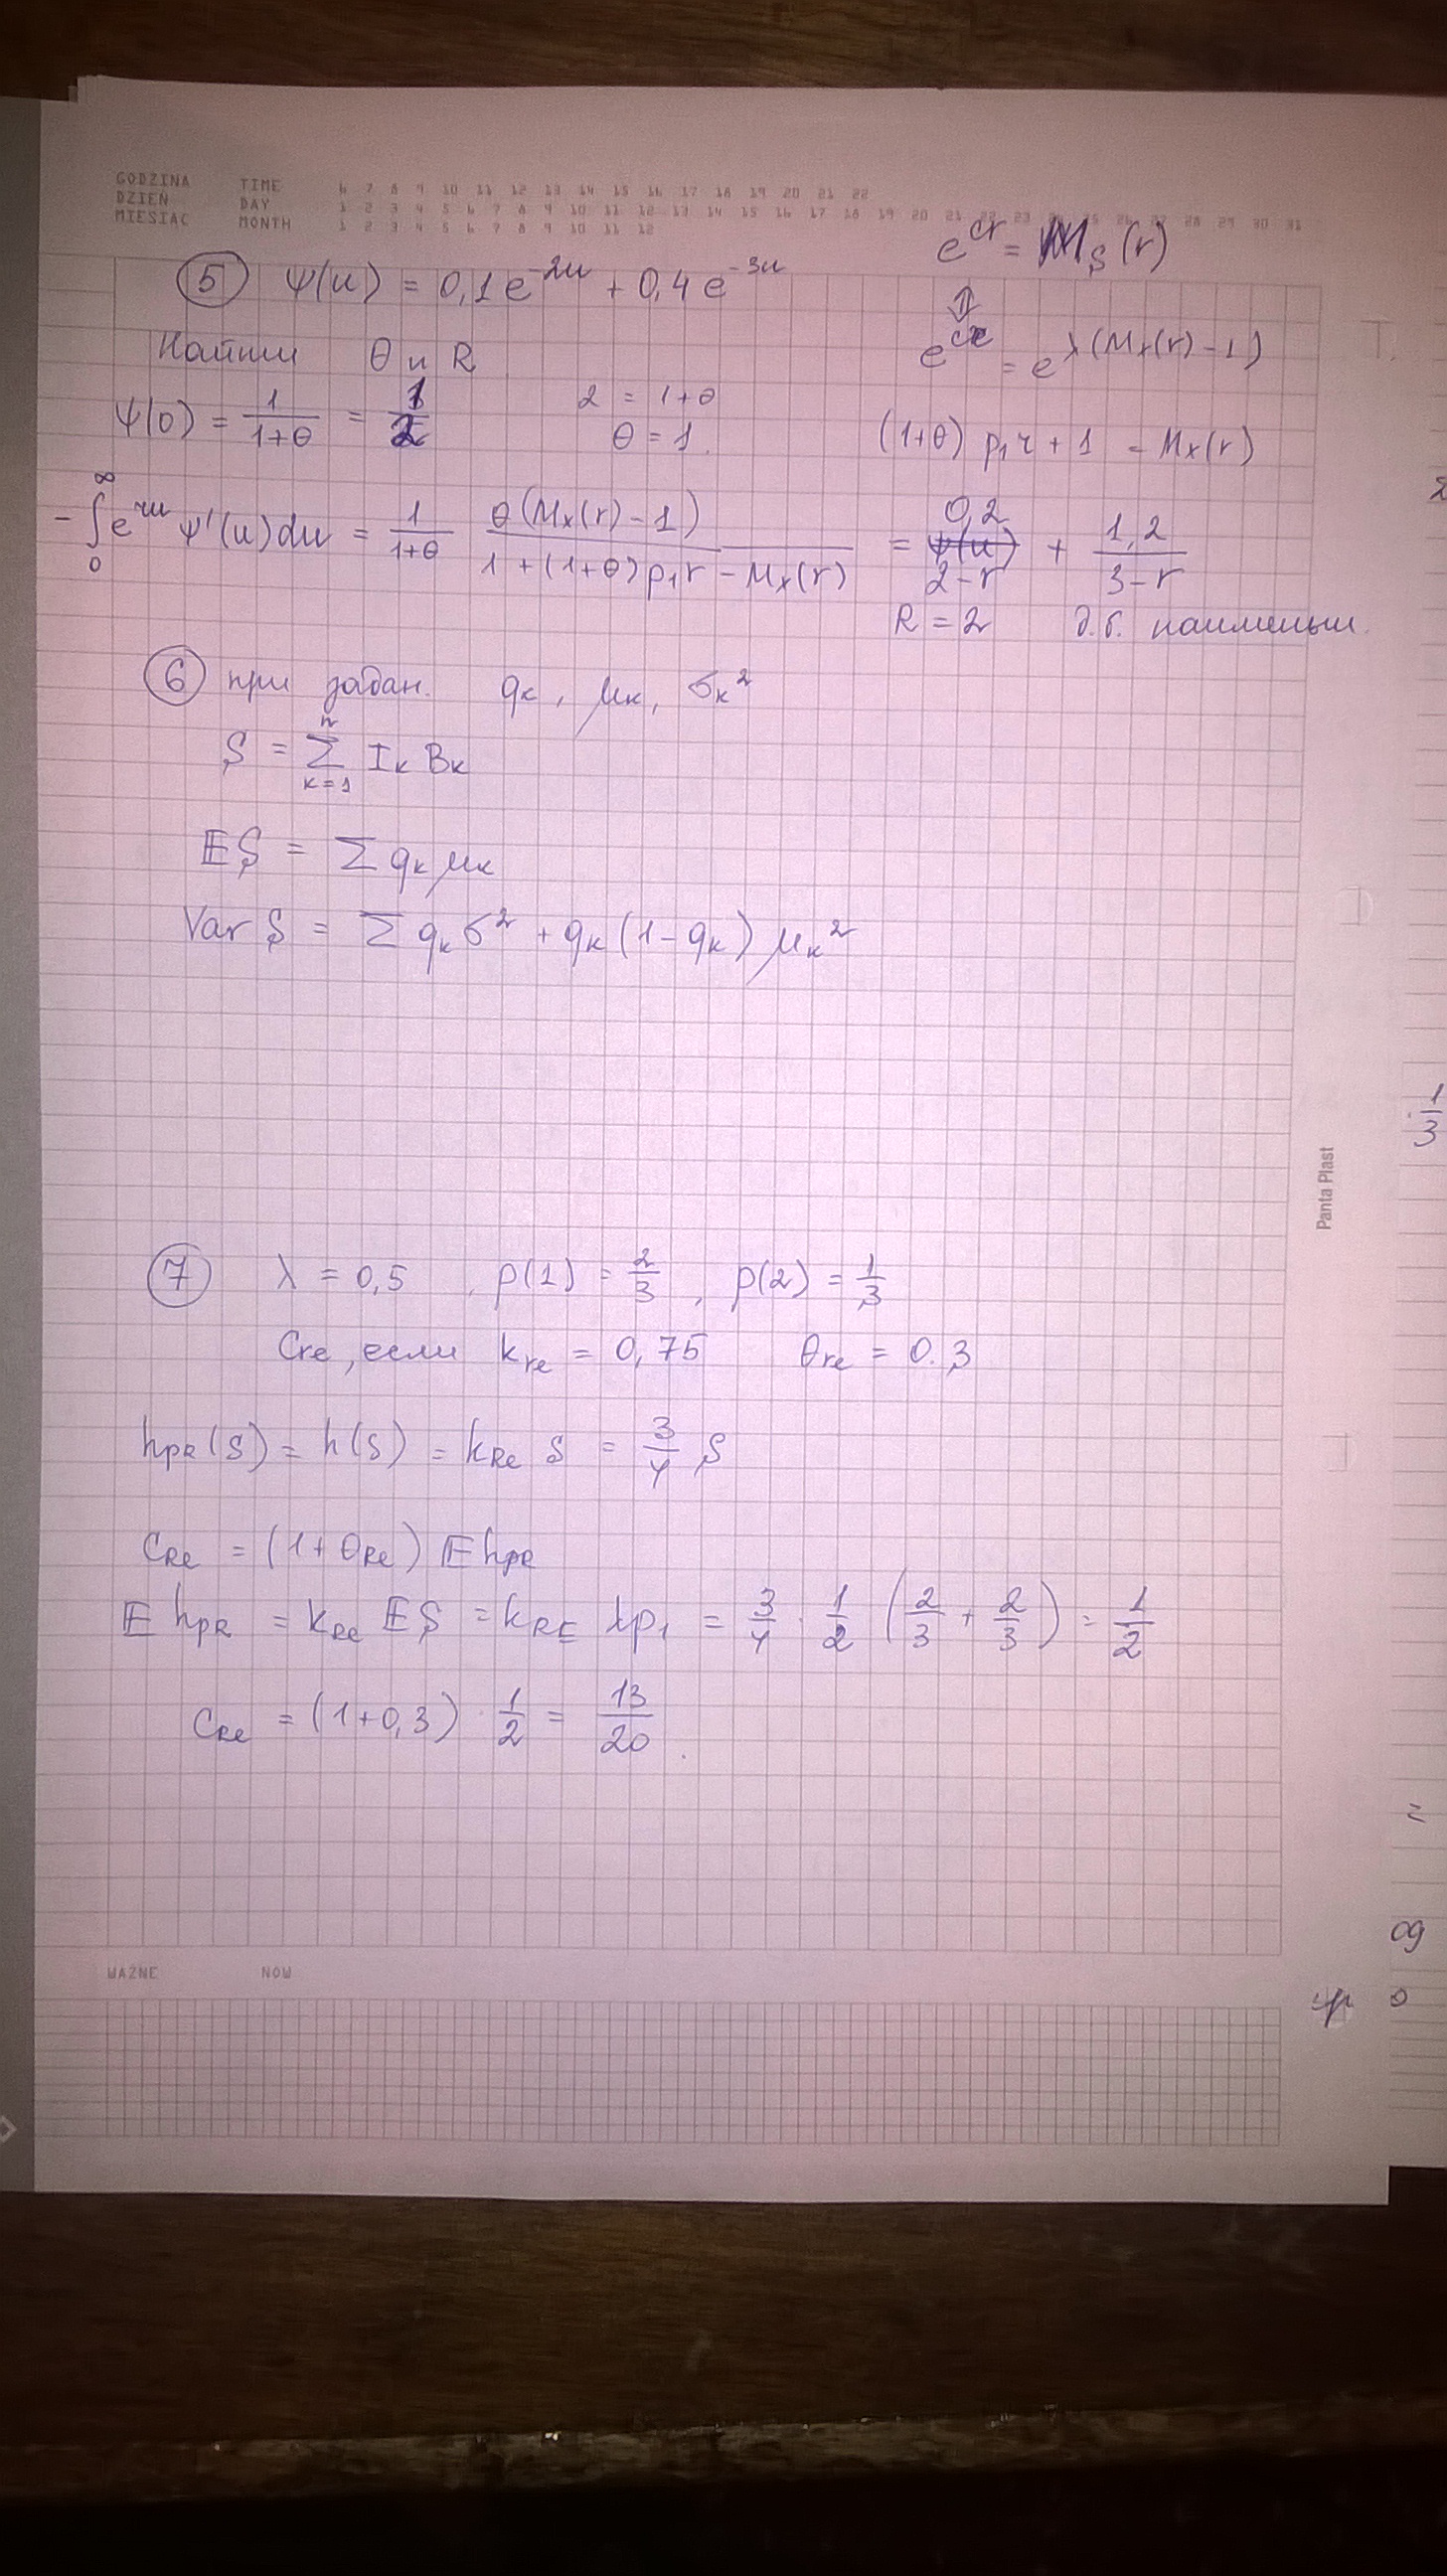 GODZINA TIME 6 7 8 9 10 11 12 13 14 15 16 17 18 19 20 21 22
DZIEŃ DAY 1 2 3 4 5 6 7 8 9 10 11 12 13 14 15 16 17 18 19 20 21 22 23 24 25 26 27 28 29 30 31
MIESIĄC MONTH 1 2 3 4 5 6 7 8 9 10 11 12
e^{cr} = M_S(r)
⑤ ψ(u) = 0,1 e^{-2u} + 0,4 e^{-3u}
⇕
Найти θ и R
e^{cr} = e^{λ(M_x(r) - 1)}
ψ(0) = 1/(1+θ) = 1/2
2 = 1+θ
θ = 1.
(1+θ) p₁ r + 1 = M_x(r)
-∫₀^∞ e^{ru} ψ'(u) du = 1/(1+θ) θ(M_x(r) - 1)/(1 + (1+θ) p₁ r - M_x(r)) = 0,2/(2-r) + 1,2/(3-r)
R = 2 д.б. наименьш.
⑥ при задан. q_k, μ_k, σ_k²
S = Σ_{k=1}^{n} I_k B_k
𝔼S = Σ q_k μ_k
Var S = Σ q_k σ² + q_k (1 - q_k) μ_k²
Panta Plast
⑦ λ = 0,5, p(1) = 2/3, p(2) = 1/3
C_re, если k_re = 0,75 θ_re = 0.3
h_PR(S) = h(S) = k_Re S = 3/4 S
C_Re = (1 + θ_Re) 𝔼 h_PR
𝔼 h_PR = k_Re 𝔼S = k_RE λp₁ = 3/4 · 1/2 (2/3 + 2/3) = 1/2
C_Re = (1+0,3) · 1/2 = 13/20.
WAŻNE NOW